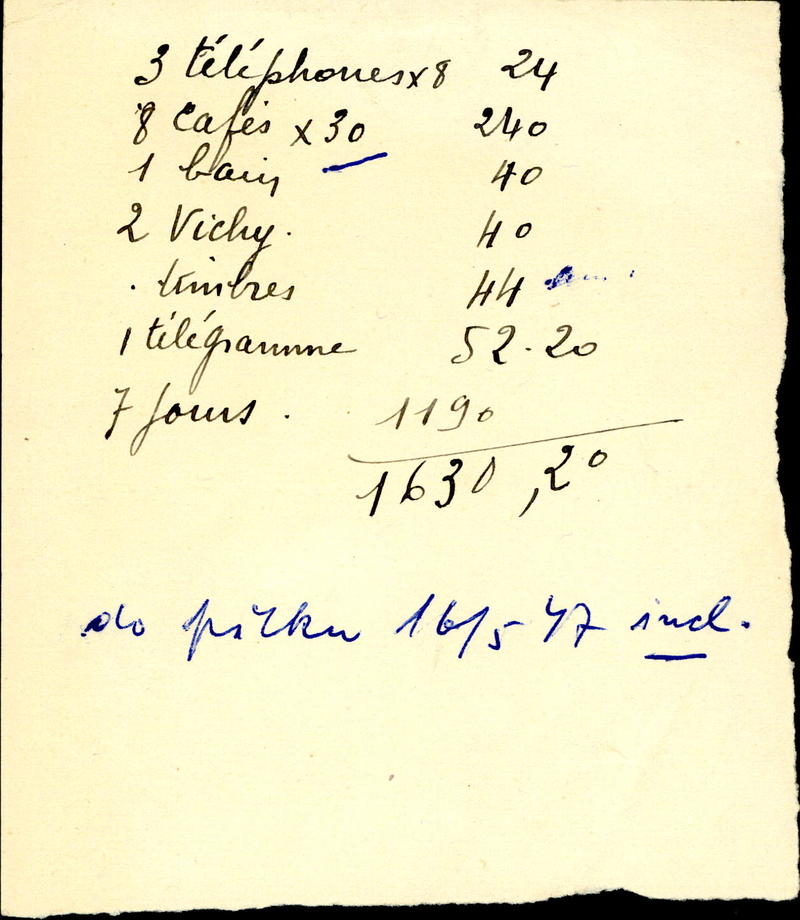 3 téléphones x 8 24
8 Cafés x 30 240
1 bain 40
2 Vichy. 40
. timbres 44
1 télégramme 52.20
7 jours . 1190
1630,20
do pátku 16/5 47 incl.